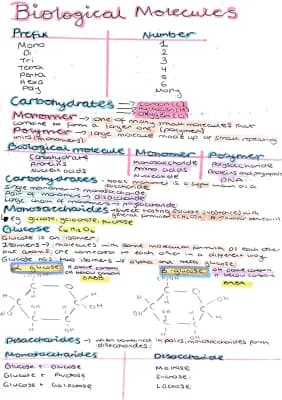 Biological Molecules
Prefix Number
Mono 1
Di 2
Tri 3
Tetra 4
Penta 5
Hexa 6
Poly Many
Carbohydrates Carbon (C)
Hydrogen (H)
Oxygen (O)
Monomer → one of many small molecules that
combine to form a larger one (polymer)
Polymer → large molecule made up of small repeating
units (monomers)
Biological molecule Monomer Polymer
Carbohydrate Monosaccharide Polysaccharide
Proteins Amino acids
Nucleic acids Nucleotide DNA
Carbohydrates
Single monomer → monosaccharide
Pair of monomers → disaccharide
Large chain of monomers → polysaccharide
Monosaccharides → sweet tasting
eg glucose, galactose, fructose
Glucose C6H12O6
Glucose is an isomer
Isomers → molecules with same molecular formula as each other
but atoms are connected to each other in a different way
Glucose has two isomers → alpha and beta glucose
α glucose β glucose
Disaccharides → when combined in pairs, monosaccharides form
disaccharides
Monosaccharides Disaccharide
Glucose + Glucose Maltose
Glucose + Fructose Sucrose
Glucose + Galactose Lactose